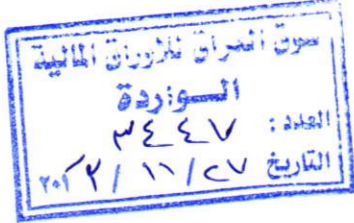 سوق العراق للاوراق المالية
الـــواردة
العدد : ٣٤٤٧
التاريخ ٢٧ / ١١ /